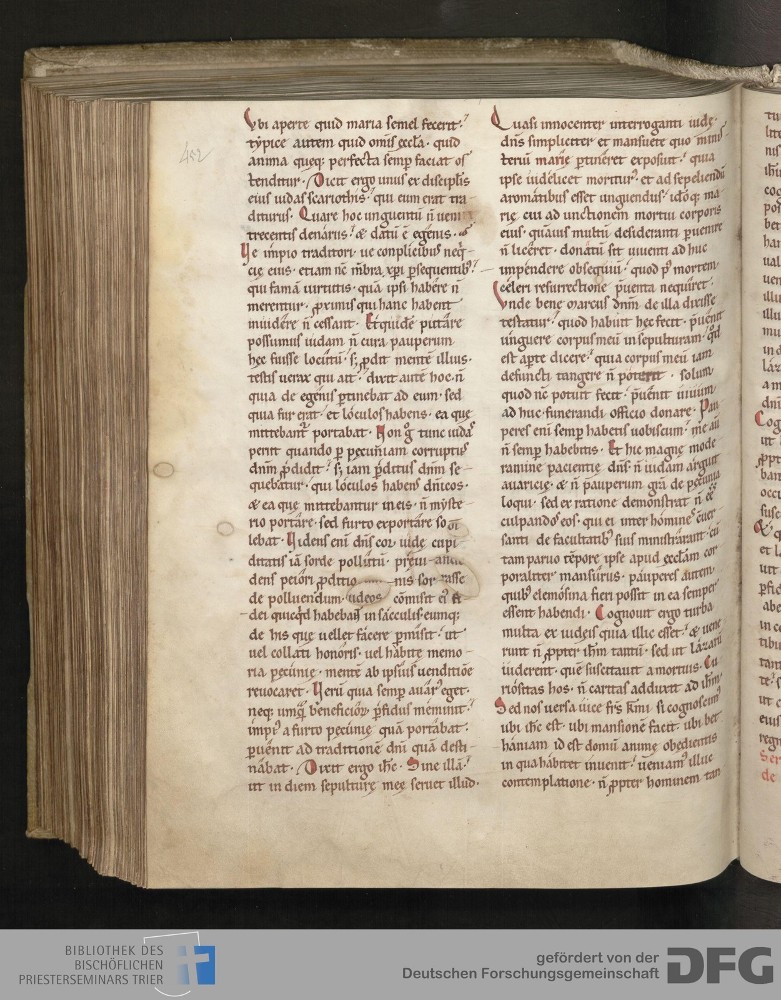 452
Vbi aperte quid maria semel fecerit?
typice autem quid omis eccla · quid
anima queq; perfecta semp faciat os
tenditur · Dicit ergo unus ex disciplis
eius iudas scariothis · qui eum erat tra
diturus · Quare hoc unguentū ñ ueniit
trecentis denariis? & datū ē egenis ·
Ve impio traditori · ue complicib; neq̄
cię eius · etiam nc̄ m̄bra xp̄i p̄sequentib;?
qui famā uirtutis · quā ipsi habere ñ
merentur · p̄ximis qui hanc habent
inuidere ñ cessant · Et quidē putare
possumus iudam ñ cura pauperum
hęc fuisse locutū · s; p̄dit mentē illius ·
testis uerax qui ait · dixit autē hoc · ñ
quia de egenis p̄tinebat ad eum · sed
quia fur erat · et loculos habens · ea quę
mittebant̄ portabat · Non g̊ tunc iudas
periit quando p̄ pecuniam corruptus
dnm̄ p̄didit · s; iam p̄ditus dnm̄ se
quebatur · qui loculos habens dn̄icos ·
& ea quę mittebantur in eis · ñ myste
rio portare · sed furto exportare so
lebat · Videns eni dn̄s cor iude cupi
ditatis iā sorde pollutū · p̄
dens peiori p̄ditio nis sor asse
de polluendum · iudeos cōmisit ei fi
dei quicq̄d habebat in sacculis · eumq;
de his quę uellet facere p̄misit · ut
uel collati honoris · uel habitę memo
ria pecunię · mentē ab ipsius uenditiōe
reuocaret · Verū quia semp auar̄ eget ·
neq; umq̄ beneficior̄ p̄fidus meminit ·
impī a furto pecunię quā portabat ·
p̄uenit ad traditionē dn̄i quā desti
nabat · Dixit ergo ihc · Sine illā ·
ut in diem sepulturę meę seruet illud ·
Quasi innocenter interroganti iudę ·
dn̄s simpliciter et mansuete quo minis
teriū marię p̄tineret exposuit · quia
ipse uidelicet moritur̄ · et ad sepeliendū
aromatibus esset unguendus · idōq; ma
rię cui ad unctionem mortui corporis
eius · quāuis multū desideranti p̄uenire
ñ liceret · donatū sit uiuenti ad huc
impendere obsequiū · quod p̄ mortem
celeri resurrectione p̄uenta nequiret ·
Vnde bene marcus dnm̄ de illa dixisse
testatur · quod habuit hęc fecit · p̄uenit
unguere corpus meū in sepulturam · q̄d
est ap̄te dicere · quia corpus meū iam
defuncti tangere ñ poterit · solum
quod nc̄ potuit fecit · p̄uenit uiuum
ad huc · funerandi officio donare · Pau
peres eni semp habetis uobiscum · me aū
ñ semp habebitis · Et hic magnę mode
ramine pacientię dn̄s ñ iudam arguit
auaricię · & ñ pauperum gr̄a de pecunia
loqui · sed ex ratione demonstrat ñ ēē
culpandos eos · qui ei inter homines cuer
santi de facultatib; suis ministrarunt · cū
tam paruo tēpore ipse apud ecclam cor
poraliter mansurus · pauperes autem
quib; elemosina fieri possit in ea semper
essent habendi · Cognouit ergo turba
multa ex iudeis quia illic esset · & uene
runt ñ p̄pter ihm̄ tantū · sed ut lazarū
uiderent · quē suscitauit a mortuis · Cu
riositas hos · ñ caritas adduxit ad ihm̄ ·
Sed nos uersa uice frs̄ km̄i si cognoscim̄
ubi ihc est · ubi mansionē facit · ubi bet
haniam id est domū animę obedientis
in qua habitet inuenit · ueniam̄ illuc
contemplatione · ñ p̄pter hominem tan
BIBLIOTHEK DES
BISCHÖFLICHEN
PRIESTERSEMINARS TRIER
gefördert von der
Deutschen Forschungsgemeinschaft
DFG